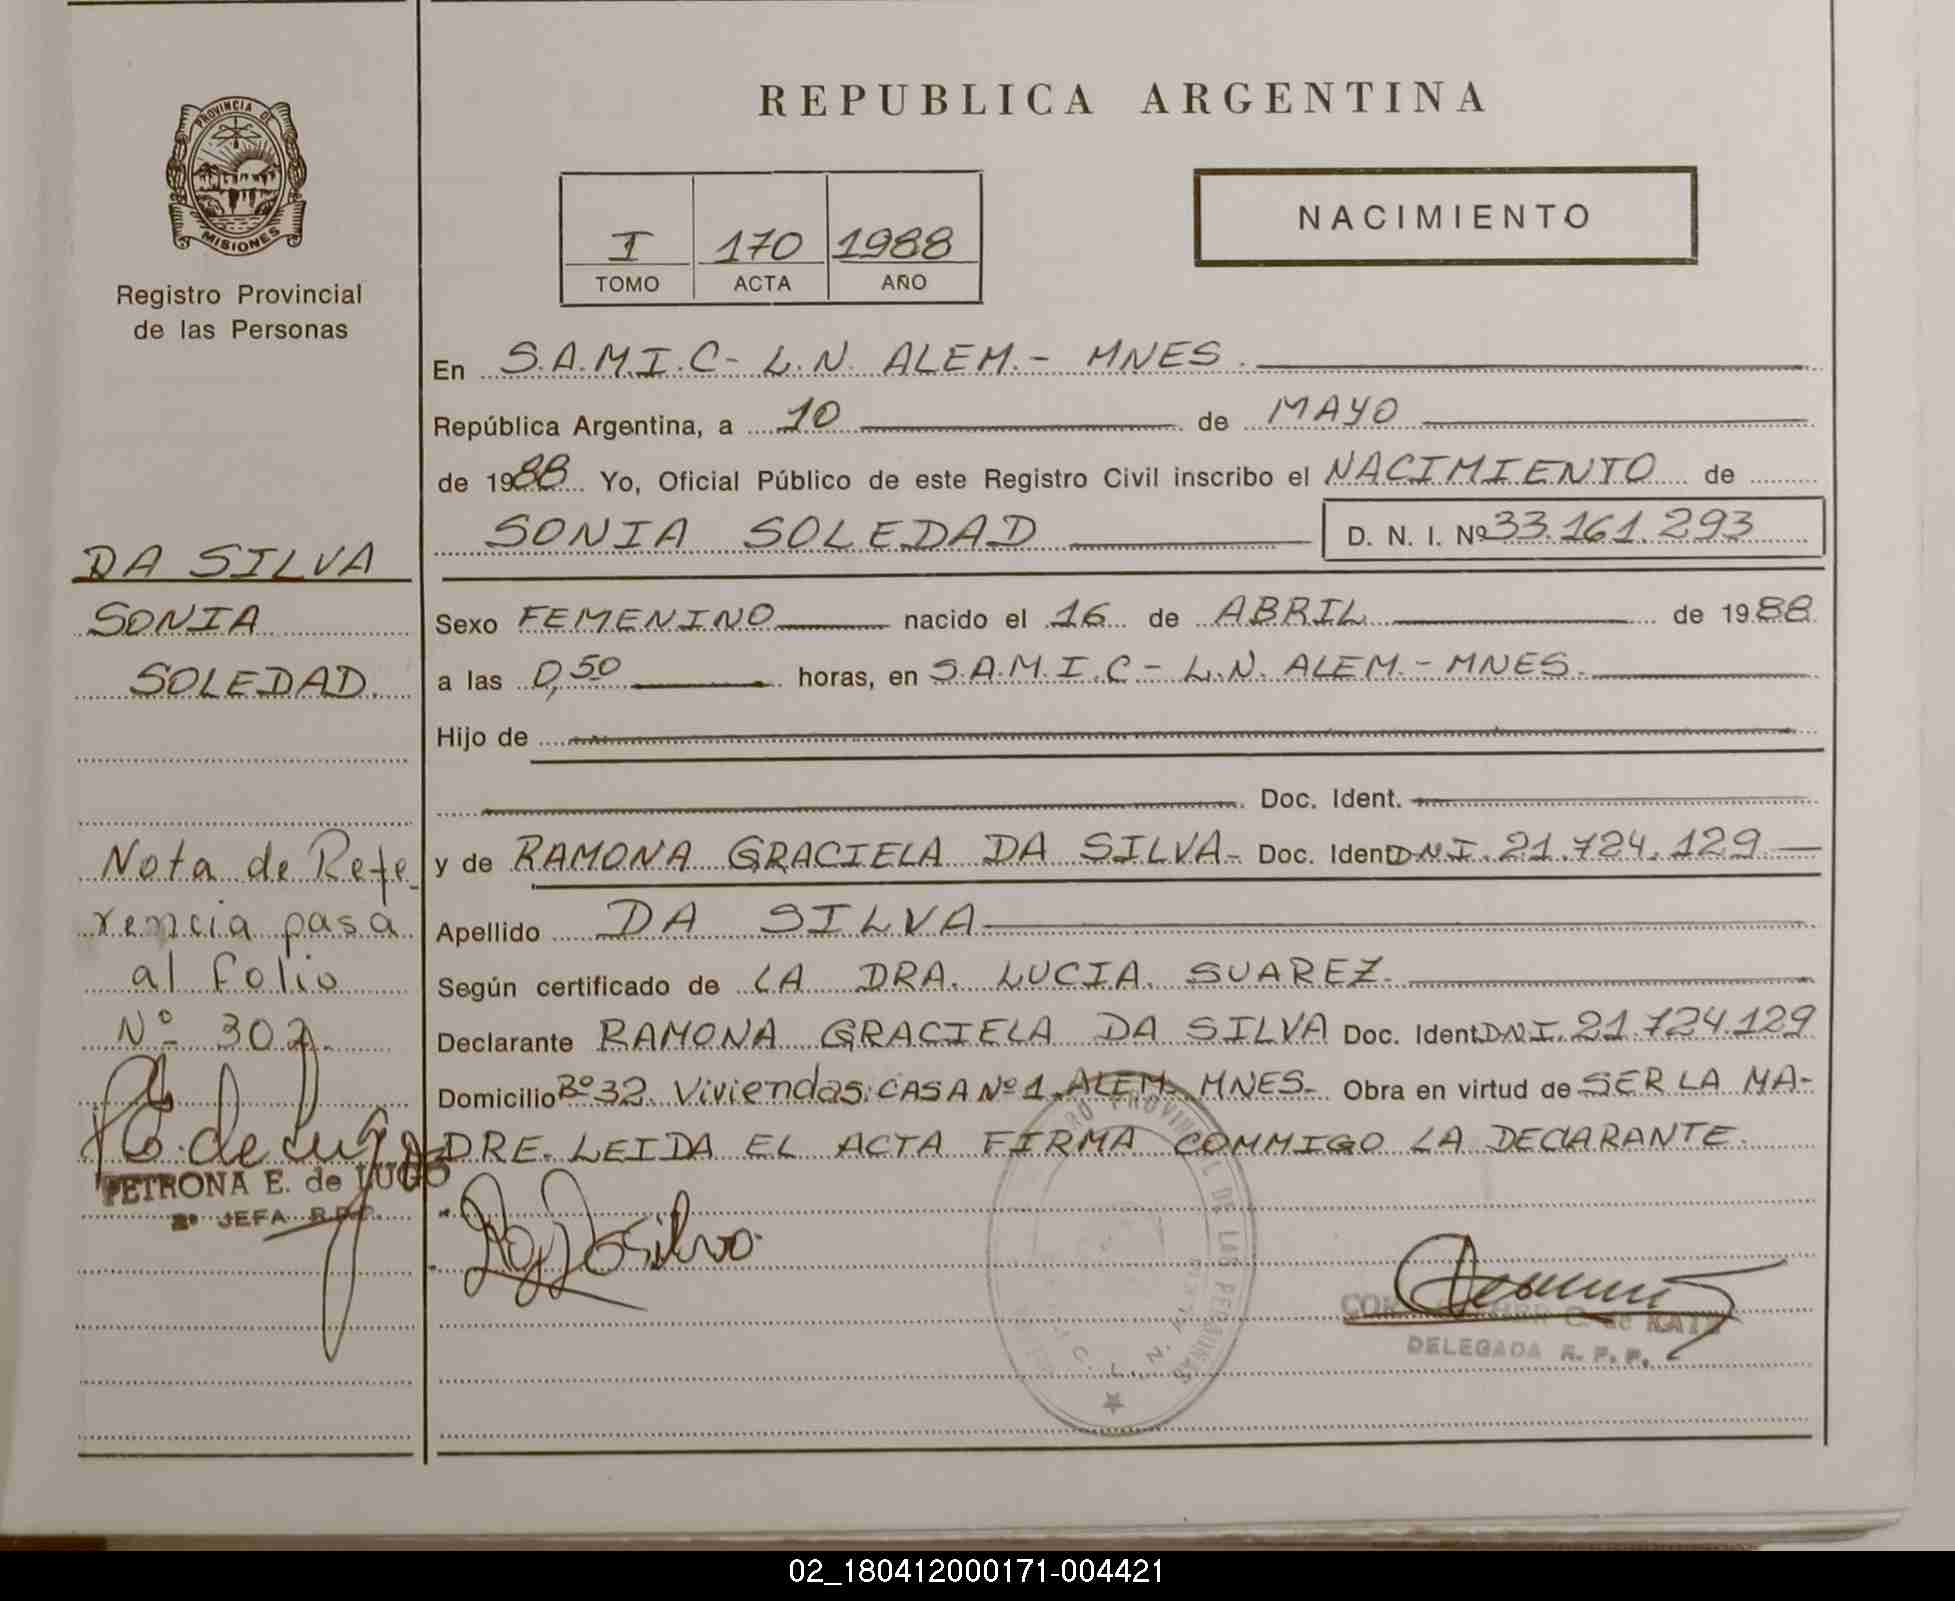 PROVINCIA DE
MISIONES
Registro Provincial
de las Personas
REPUBLICA ARGENTINA
I 170 1988
TOMO ACTA AÑO
NACIMIENTO
En S.A.M.I.C- L.N. ALEM.- MNES.
República Argentina, a 10 de MAYO
de 1988 Yo, Oficial Público de este Registro Civil inscribo el NACIMIENTO de
SONIA SOLEDAD D. N. I. Nº 33.161.293
Sexo FEMENINO nacido el 16 de ABRIL de 1988
a las 0,50 horas, en S.A.M.I.C- L.N. ALEM.- MNES.
Hijo de
Doc. Ident.
y de RAMONA GRACIELA DA SILVA- Doc. Ident DNI. 21.724.129
Apellido DA SILVA
Según certificado de LA DRA. LUCIA SUAREZ.
Declarante RAMONA GRACIELA DA SILVA Doc. Ident. DNI. 21.724.129
Domicilio Bº 32 Viviendas: CASA Nº 1. ALEM- MNES- Obra en virtud de SER LA MA-
DRE. LEIDA EL ACTA FIRMA COMMIGO LA DECLARANTE.
DA SILVA
SONIA
SOLEDAD
Nota de Refe
rencia pasa
al folio
Nº 302.
PETRONA E. de LUGO
2º JEFA R.P.P.
C. de KATZ
DELEGADA R. P. P.
PROVINCIAL DE LAS PERSONAS
02_180412000171-004421